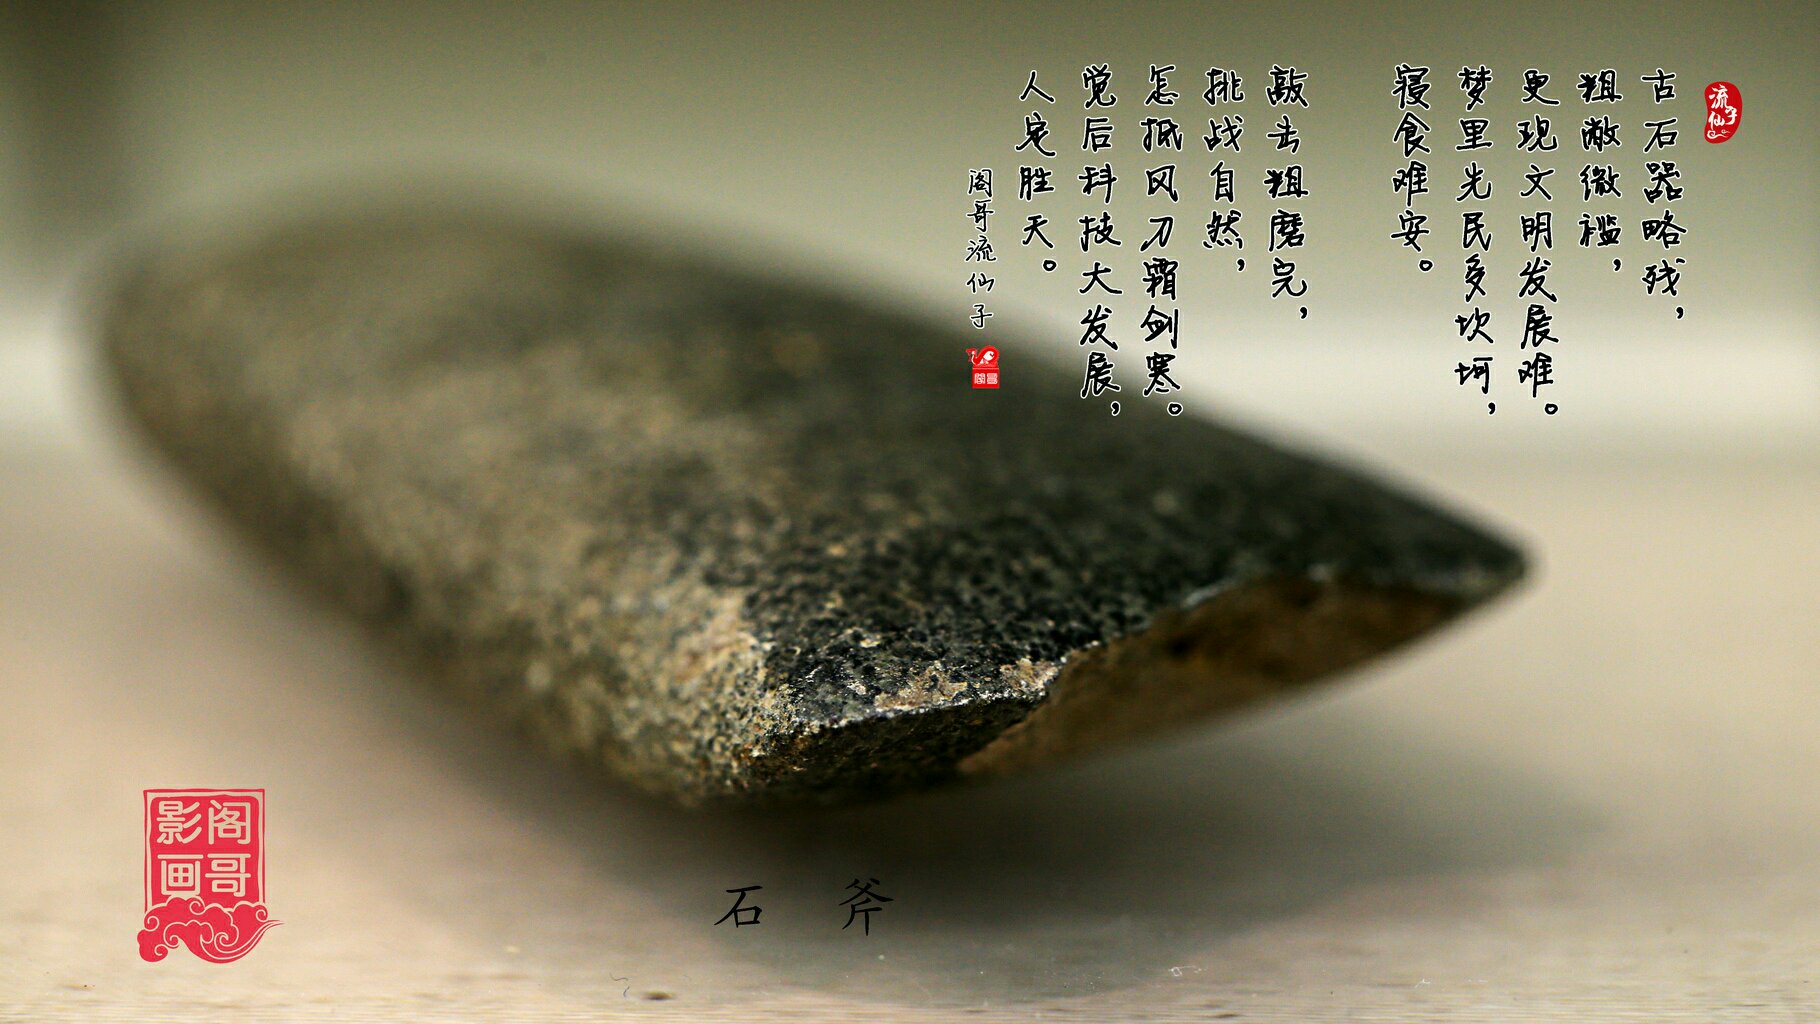 流仙子
古石器略残，
粗敝微褴，
更现文明发展难。
梦里先民多坎坷，
寝食难安。
敲击粗磨完，
挑战自然，
怎抵风刀霜剑寒。
觉后科技大发展，
人定胜天。
阁哥流仙子
阁哥
石斧
阁哥
影画